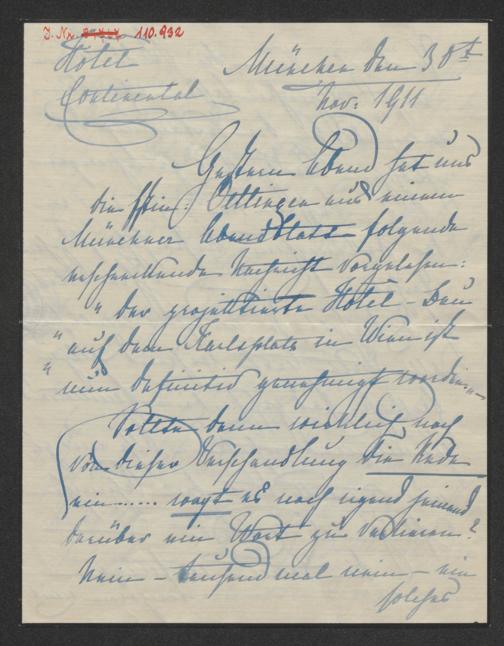 J. Nr. 110.932
Hôtel
Continental
München den 30t
Nov: 1911
Gestern Abend hat uns
die Fstin: Öttingen aus einem
Münchner Abendblatt folgende
erschreckende Nachricht vorgelesen:
" der projektierte Hôtel - Bau
" auf dem Karlsplatz in Wien ist
" nun definitiv genehmigt worden."
Sollte denn wirklich noch
von dieser Verschandlung die Rede
sein...... wagt es noch irgend jemand
darüber ein Wort zu verlieren?
Nein - tausend mal nein - ein
solches